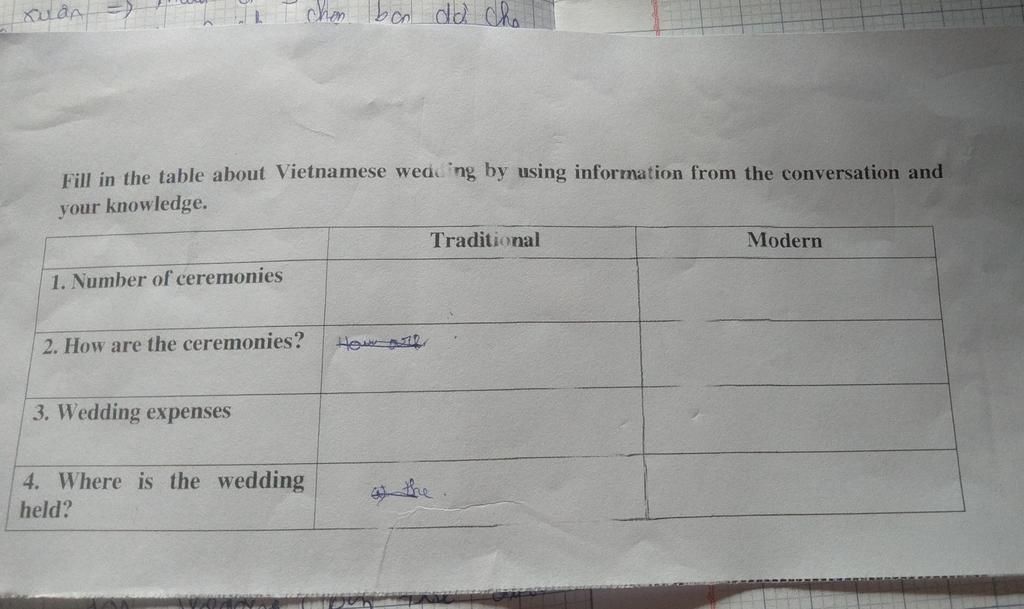 xuân => chọn bạn đời cho
Fill in the table about Vietnamese wedding by using information from the conversation and
your knowledge.
Traditional Modern
1. Number of ceremonies
2. How are the ceremonies? How are
3. Wedding expenses
4. Where is the wedding
held?
the